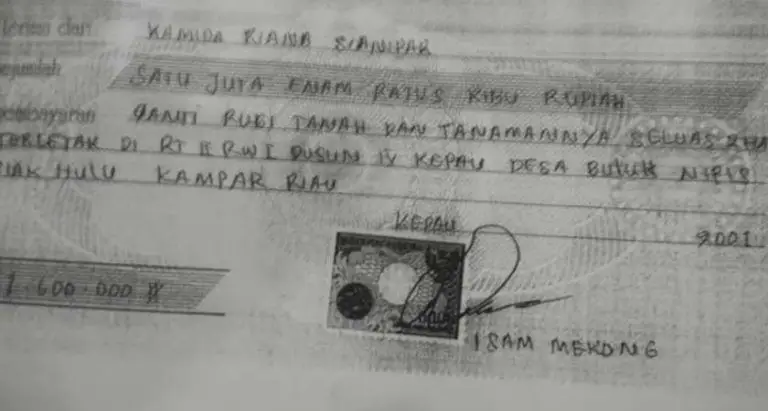 terima dari KAMIDA RIANA SIANIPAR
sejumlah SATU JUTA ENAM RATUS RIBU RUPIAH
pembayaran GANTI RUGI TANAH DAN TANAMANNYA SELUAS 2HA
TERLETAK DI RT II RW I DUSUN IV KEPAU DESA BULUH NIPIS
SIAK HULU KAMPAR RIAU
KEPAU 2001
1.600.000
ISAM MEKONG